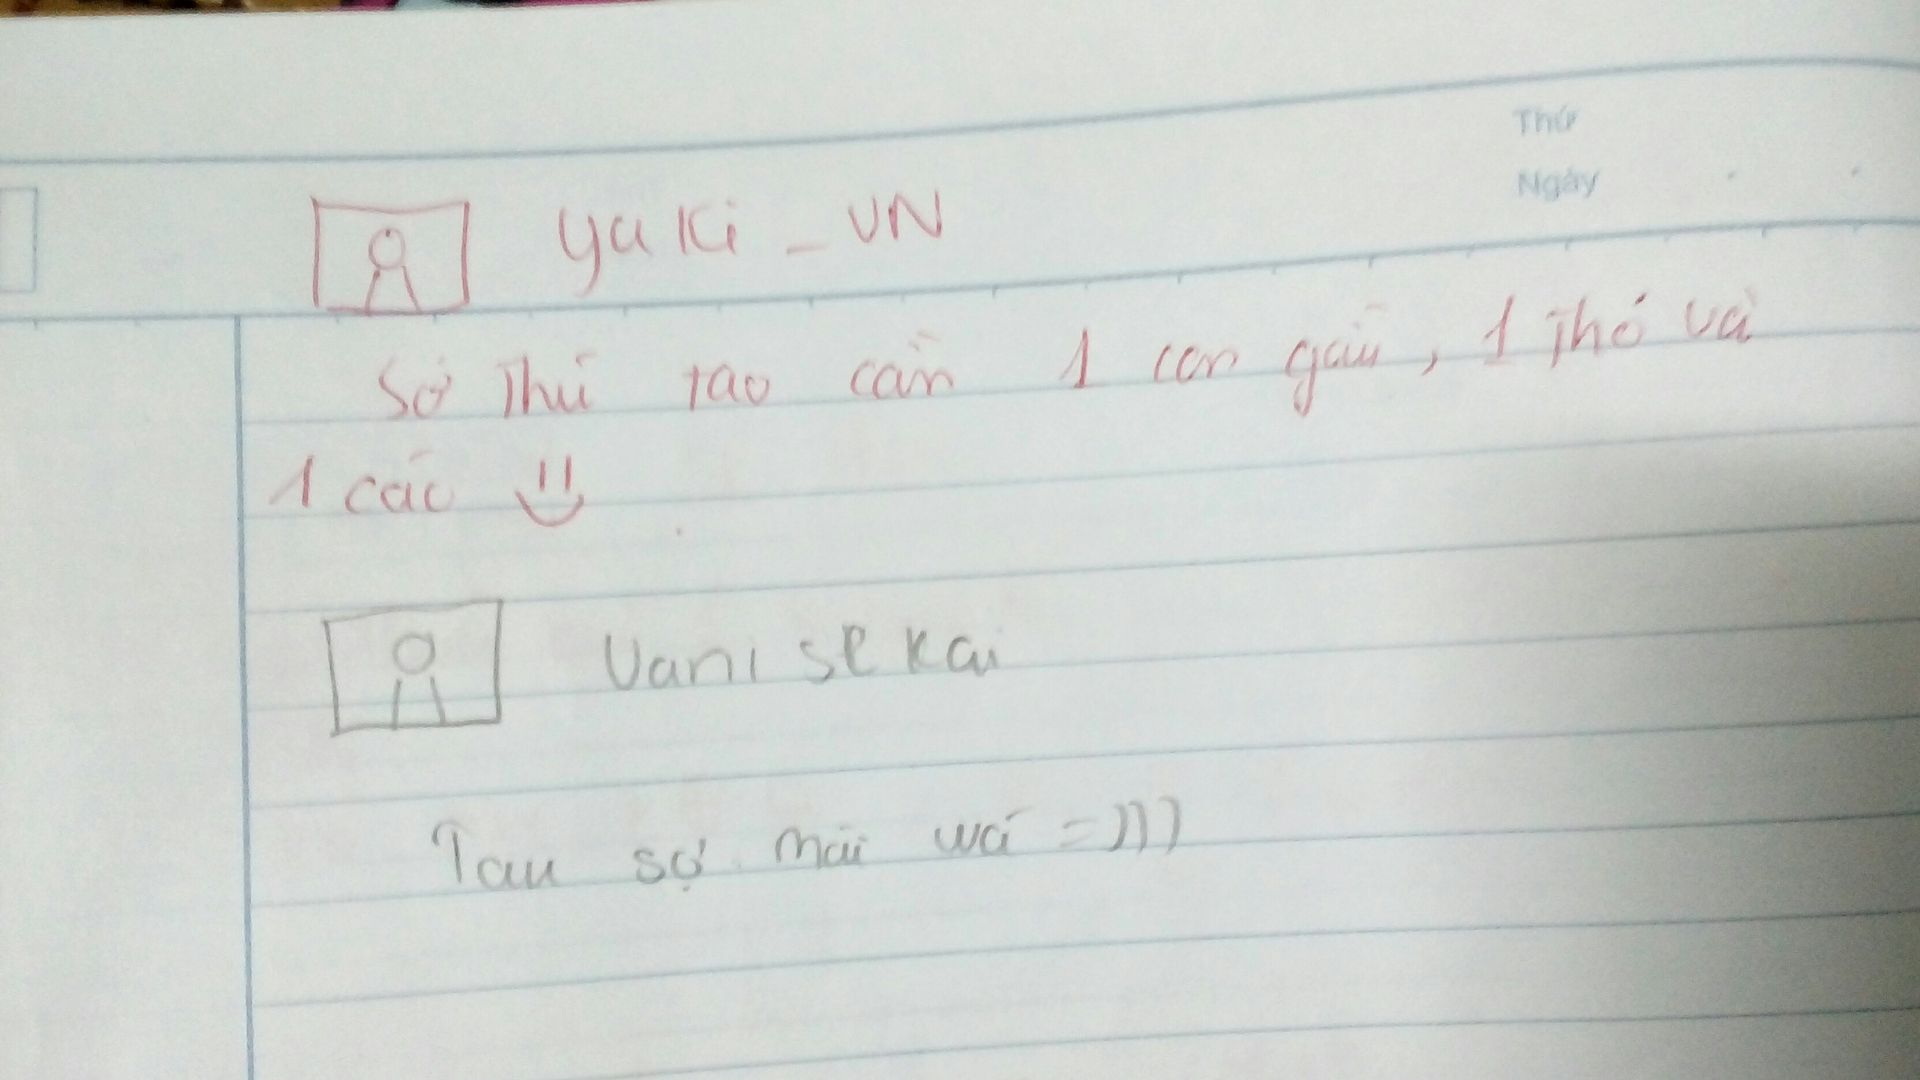 Thứ
Ngày
yuki_VN
Sở Thú tao cần 1 con gấu, 1 Thỏ và
1 cáo
Vani sekai
Tau sợ mài wá =)))